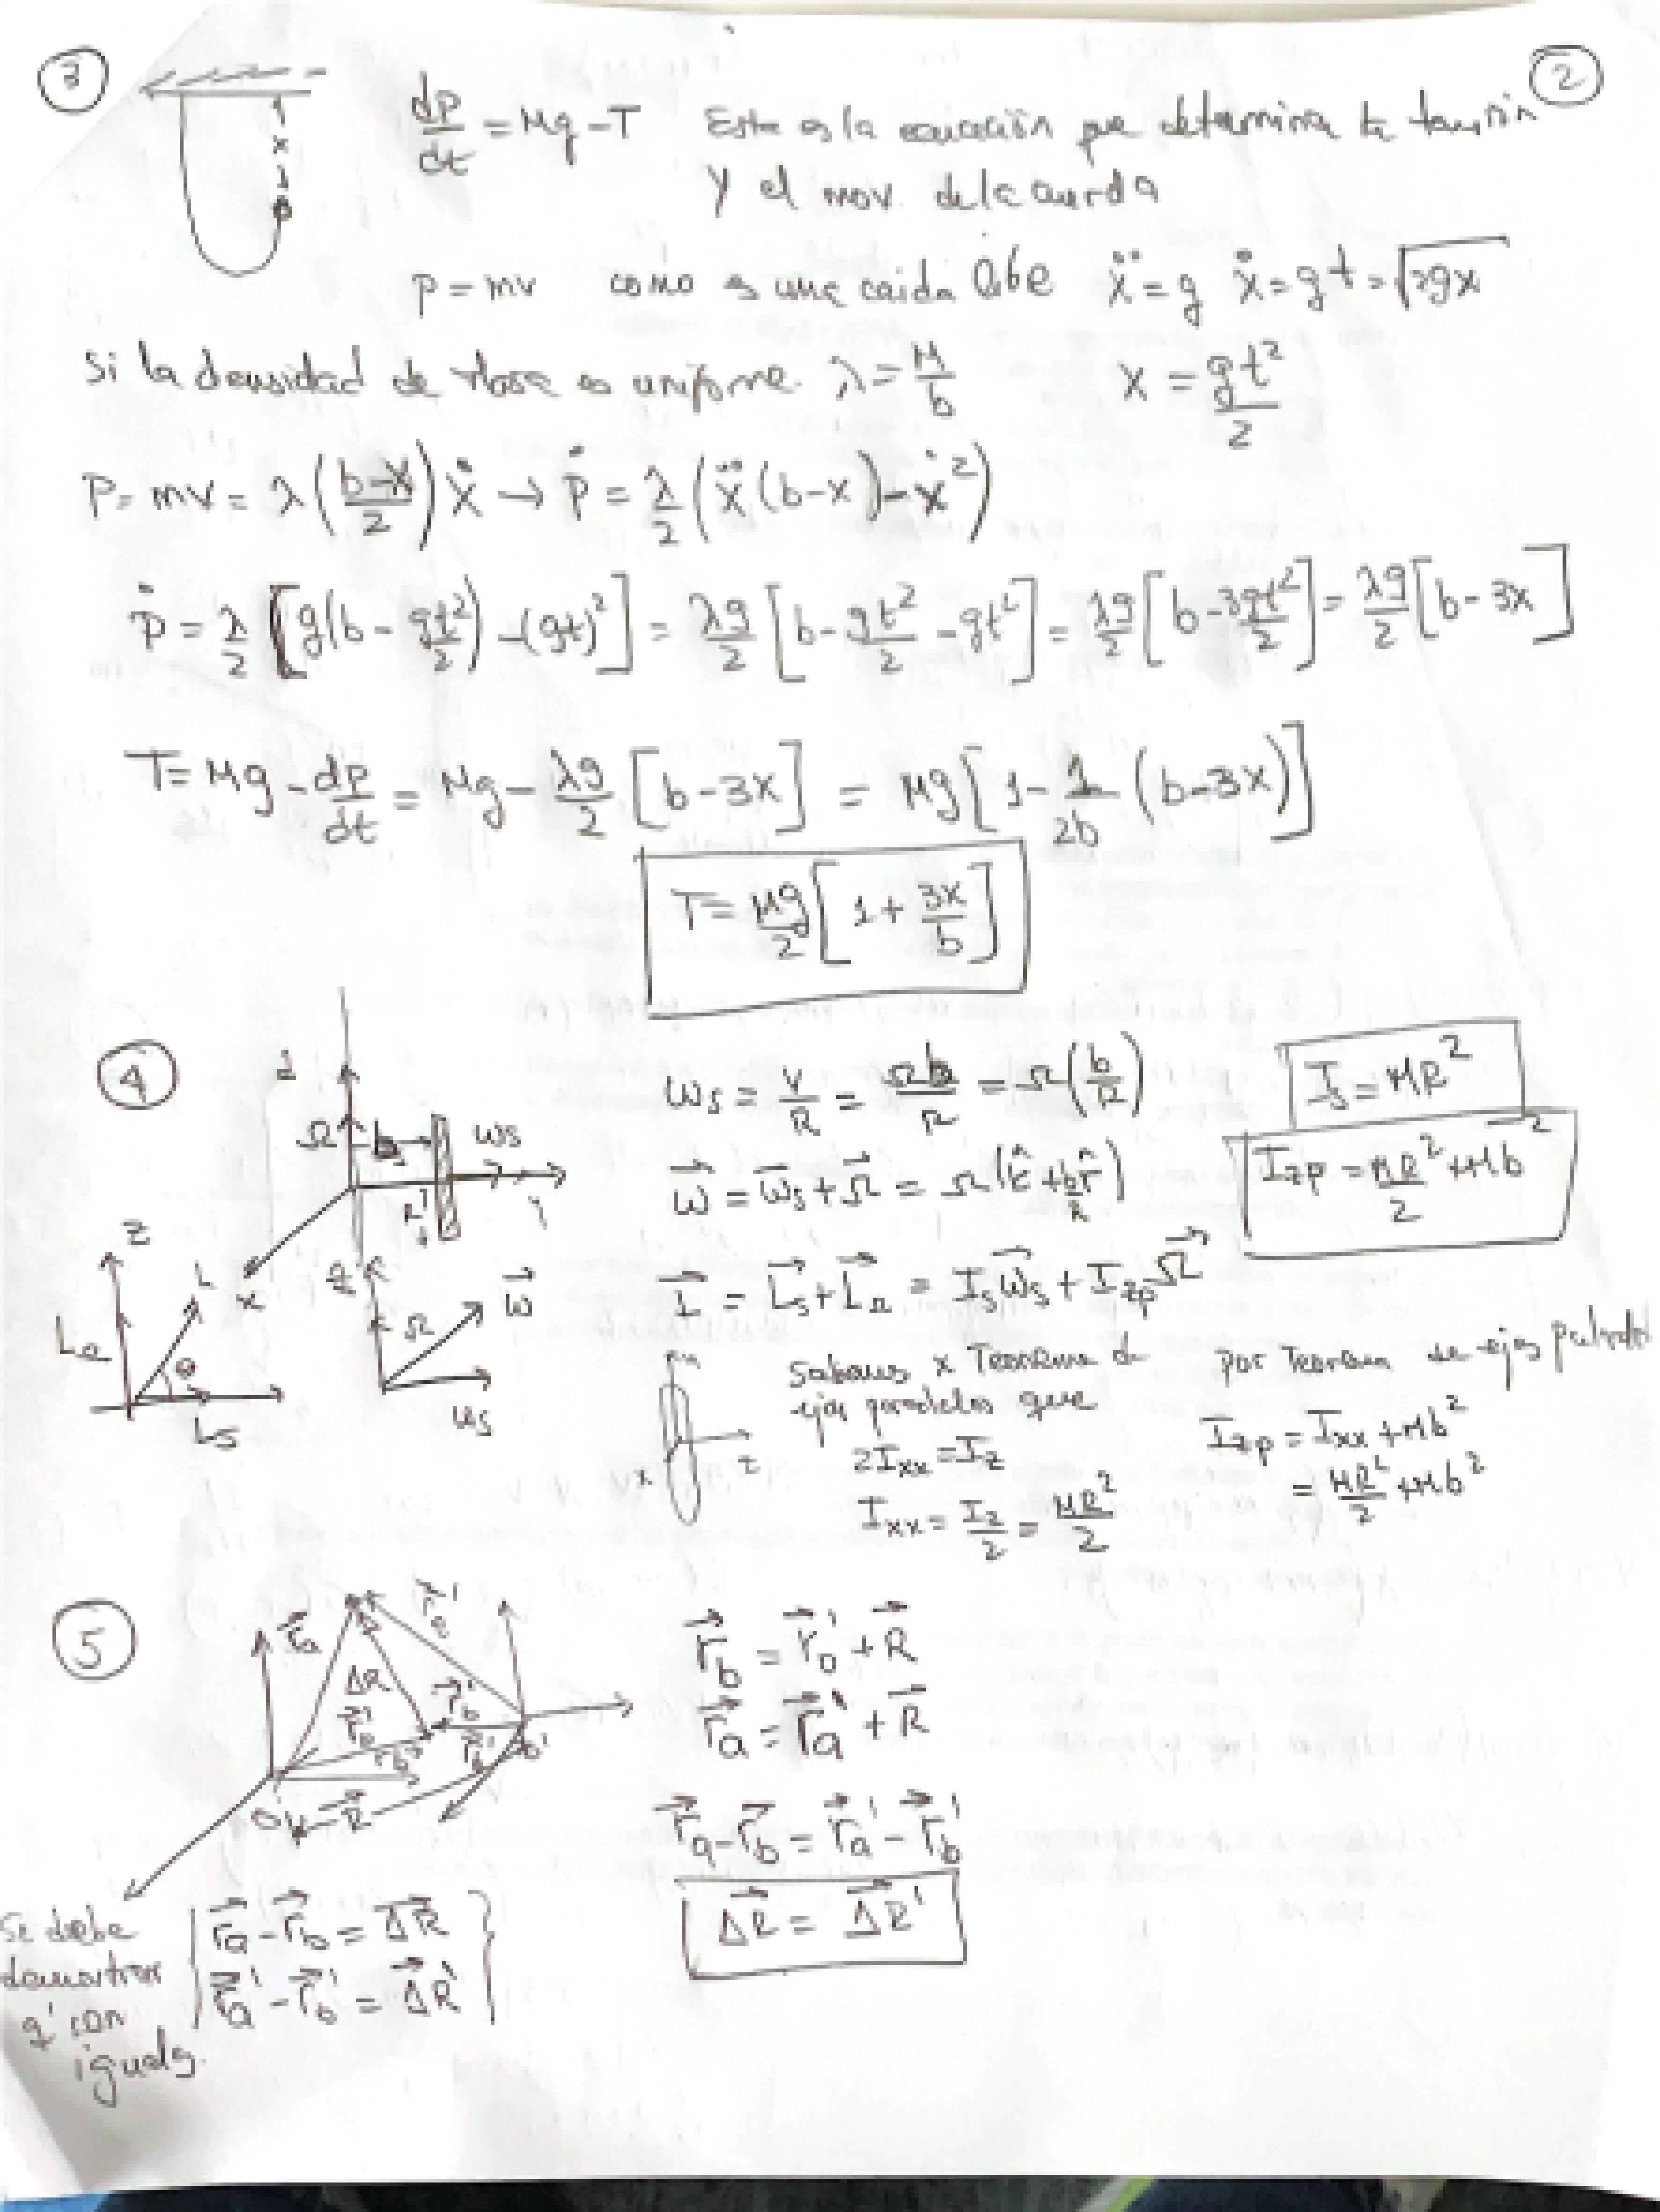 3
2
x
dp/dt = Mg - T Esta es la ecuación que determina la tensión
y el mov. de la cuerda
p = mv como es una caida libre ẍ = g ẋ = gt = √2gx
Si la densidad de masa es uniforme λ = M/b x = gt²/2
P = mv = λ((b-x)/2)ẋ → ṗ = λ/2(ẍ(b-x) - ẋ²)
ṗ = λ/2 [g(b - gt²/2) - (gt)²] = λg/2 [b - gt²/2 - gt²] = λg/2 [b - 3gt²/2] = λg/2 [b - 3x]
T = Mg - dp/dt = Mg - λg/2 [b - 3x] = Mg[1 - 1/2b (b - 3x)]
T = Mg/2 [1 + 3x/b]
4
Ω b ωs
R
x
ωs = V/R = Ωb/R = Ω(b/R) Is = MR²
ω⃗ = ω⃗s + Ω⃗ = Ω(k̂ + b/R r̂) Izp = MR²/2 + Mb²
L⃗ = L⃗s + L⃗Ω = Is ω⃗s + Izp Ω⃗
z L θ Ls
z Ω ω⃗ ωs
x z
Sabemos x Teorema de
ejes paralelos que
2Ixx = Iz
Ixx = Iz/2 = MR²/2
por Teorema de ejes
Izp = Ixx + Mb²
= MR²/2 + Mb²
5
r⃗a ΔR r⃗b' O'
O R⃗
r⃗b = r⃗b' + R⃗
r⃗a = r⃗a' + R⃗
r⃗a - r⃗b = r⃗a' - r⃗b'
ΔR⃗ = ΔR⃗'
Se debe
demostrar
q' son
iguales.
r⃗a - r⃗b = ΔR⃗
r⃗a' - r⃗b' = ΔR⃗'